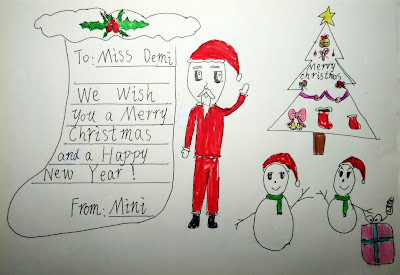 To: Miss Demi
We Wish
you a Merry
Christmas
and a Happy
New Year!
From: Mini
Merry
Christmas